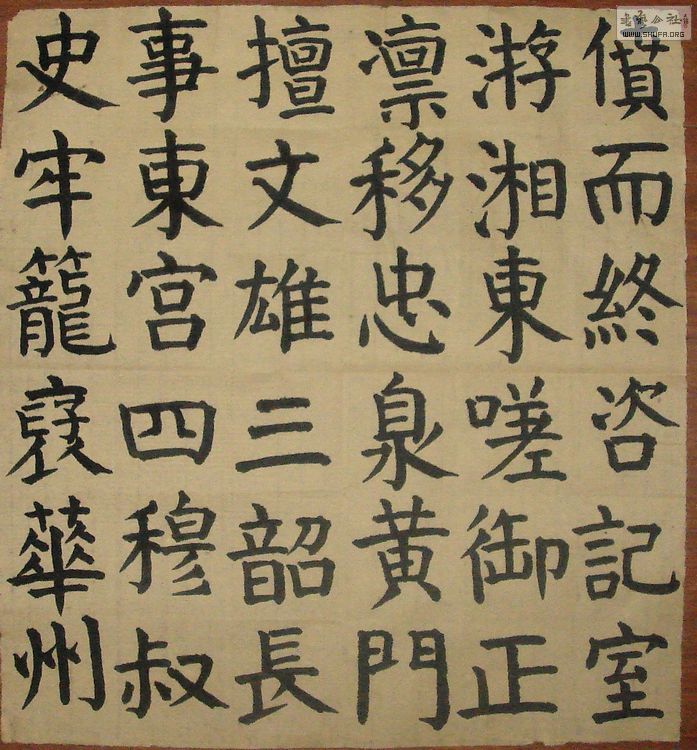 僨而終咨記室
游湘東嗟御正
凛移忠泉黄門
擅文雄三韶長
事東宫四穆叔
史牢籠裦華州
WWW.SHUFA.ORG